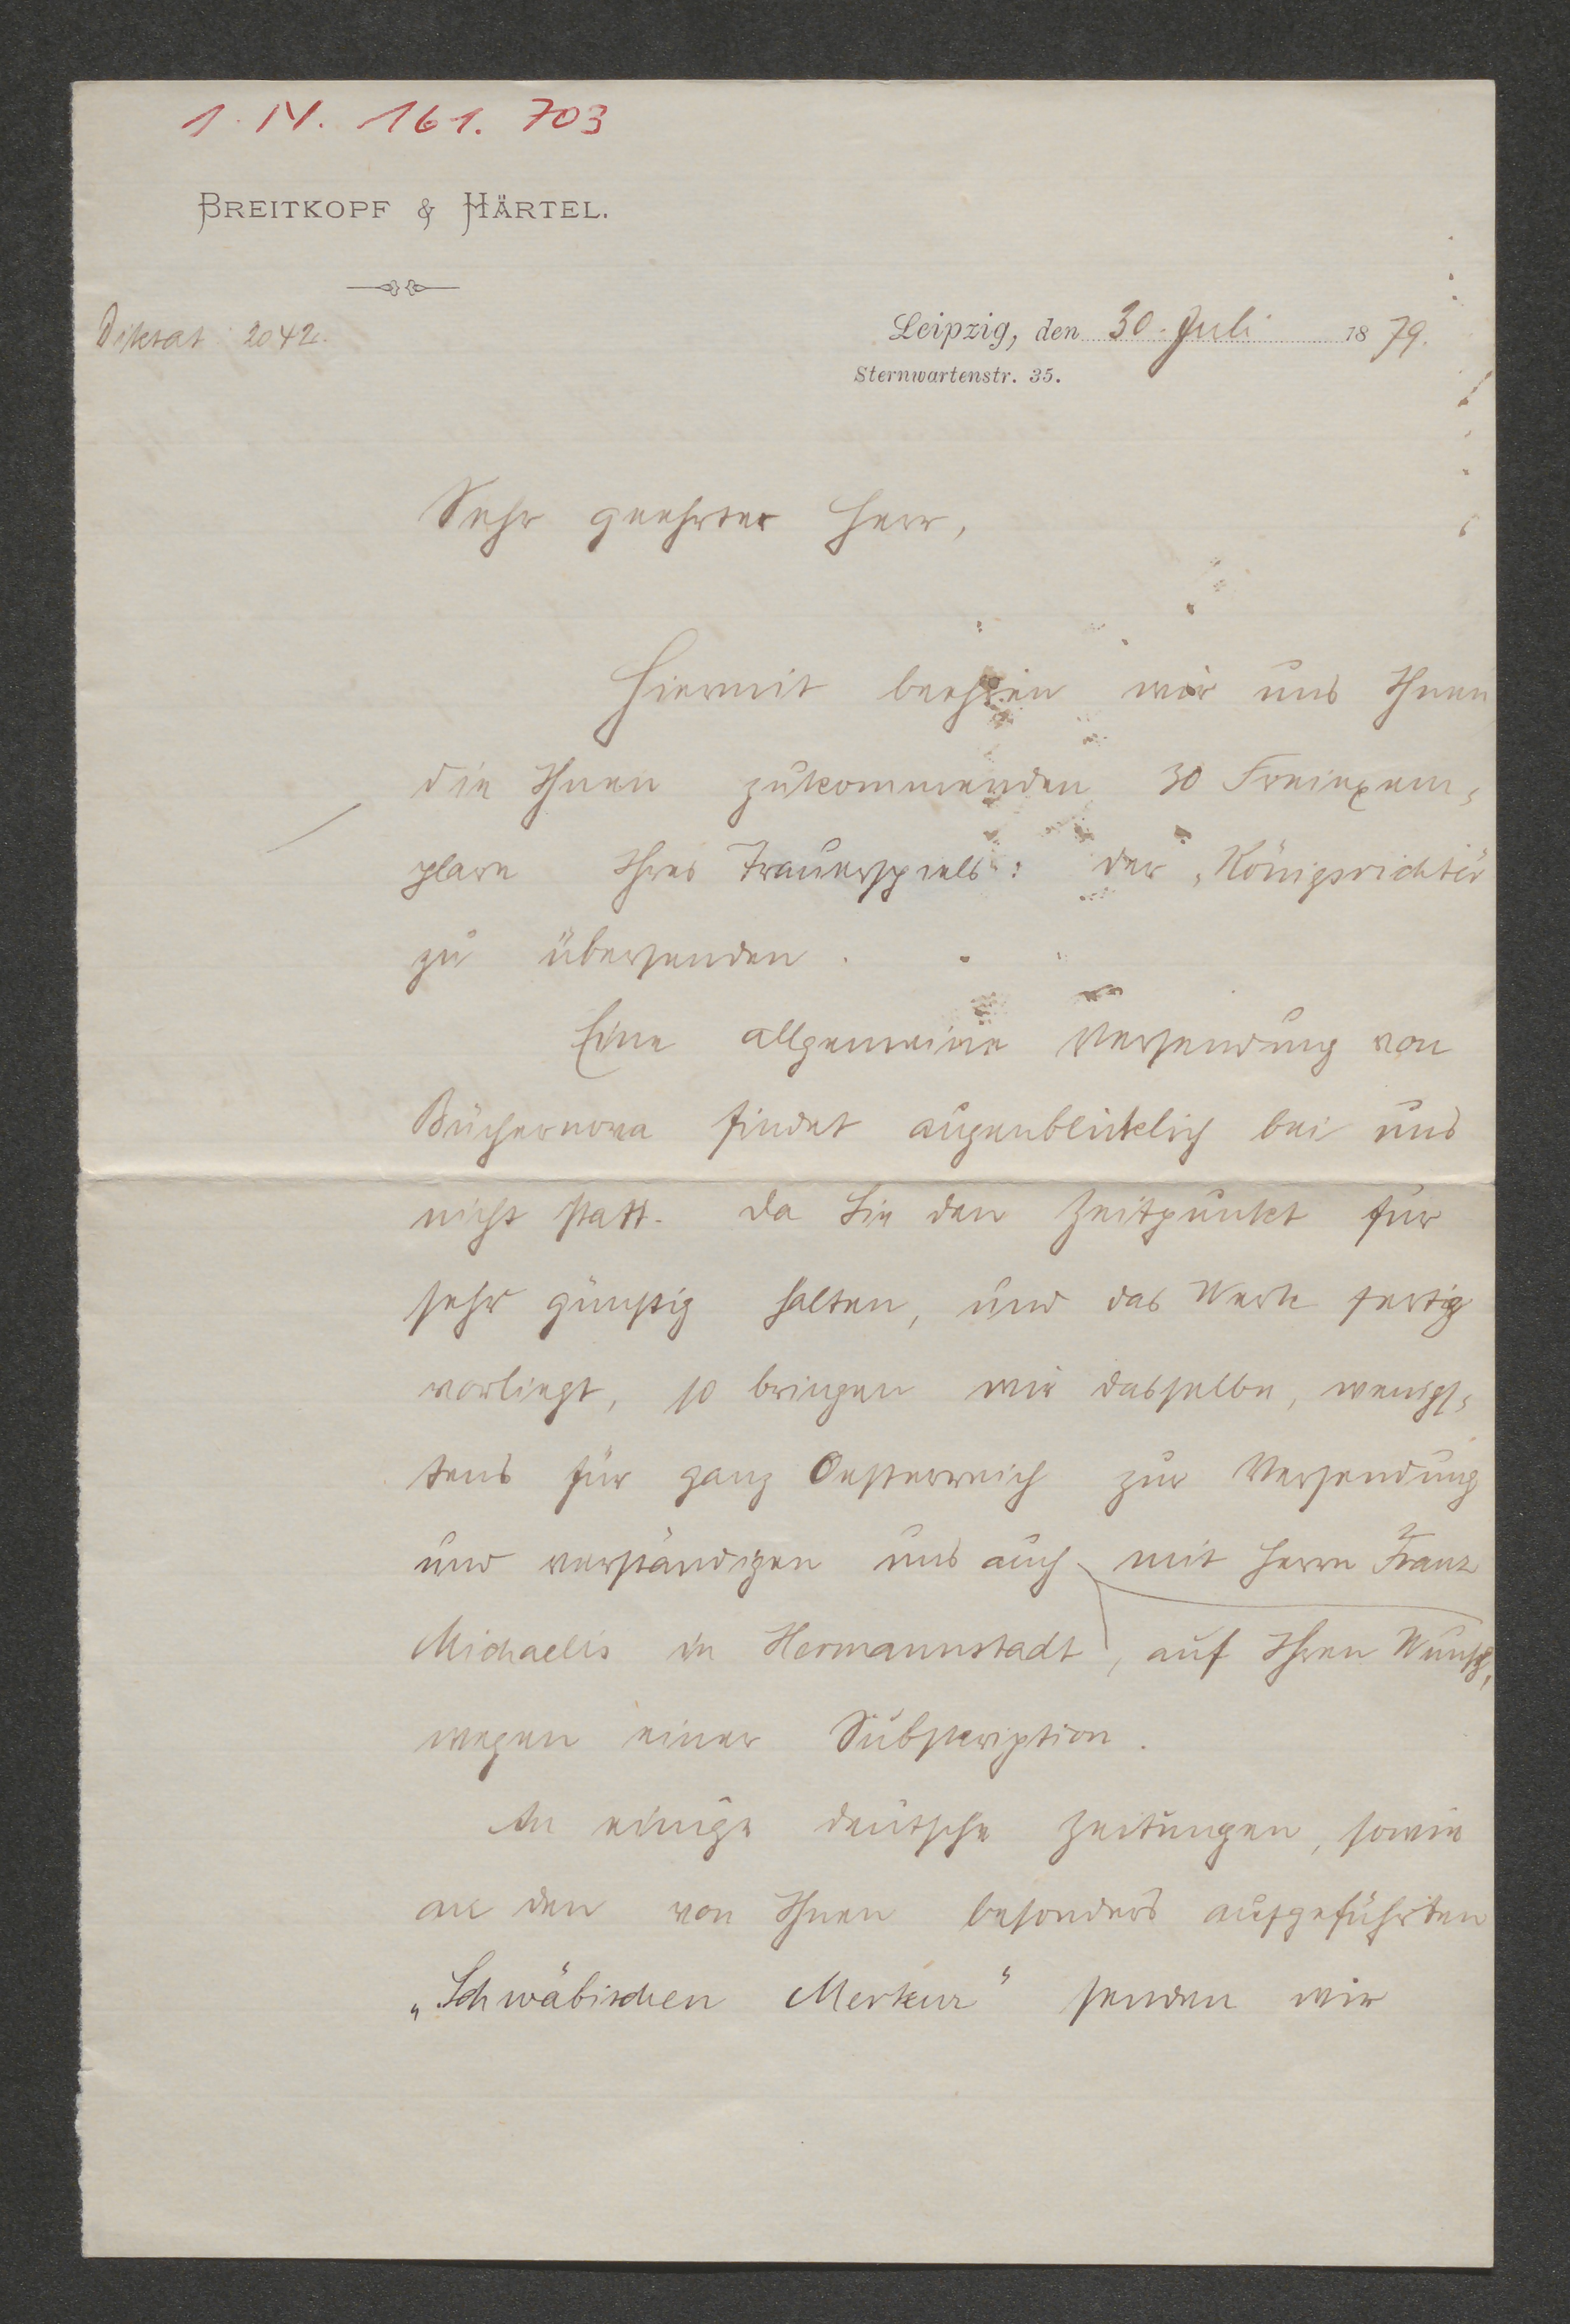 1. IV. 161. 703
BREITKOPF & HÄRTEL.
Diktat 2042.
Leipzig, den 30. Juli 1879.
Sternwartenstr. 35.
Sehr geehrter Herr,
Hiermit beehren wir uns Ihnen
die Ihnen zukommenden 30 Freiexem-
plare Ihres Trauerspiels: der „Königsrichter
zu übersenden.
Eine allgemeine Versendung von
Büchernova findet augenblicklich bei uns
nicht statt. Da Sie den Zeitpunkt für
sehr günstig halten, und das Werk fertig
vorliegt, so bringen wir dasselbe, wenigs-
tens für ganz Oesterreich zur Versendung
und verständigen uns auch mit Herrn Franz
Michaelis in Hermannstadt, auf Ihren Wunsch,
wegen einer Subskription.
An einige deutsche Zeitungen, sowie
an den von Ihnen besonders aufgeführten
„Schwäbischen Merkur" senden wir